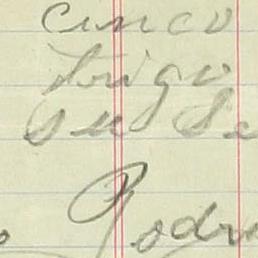 cinco
trigo
su Se
o Rodr